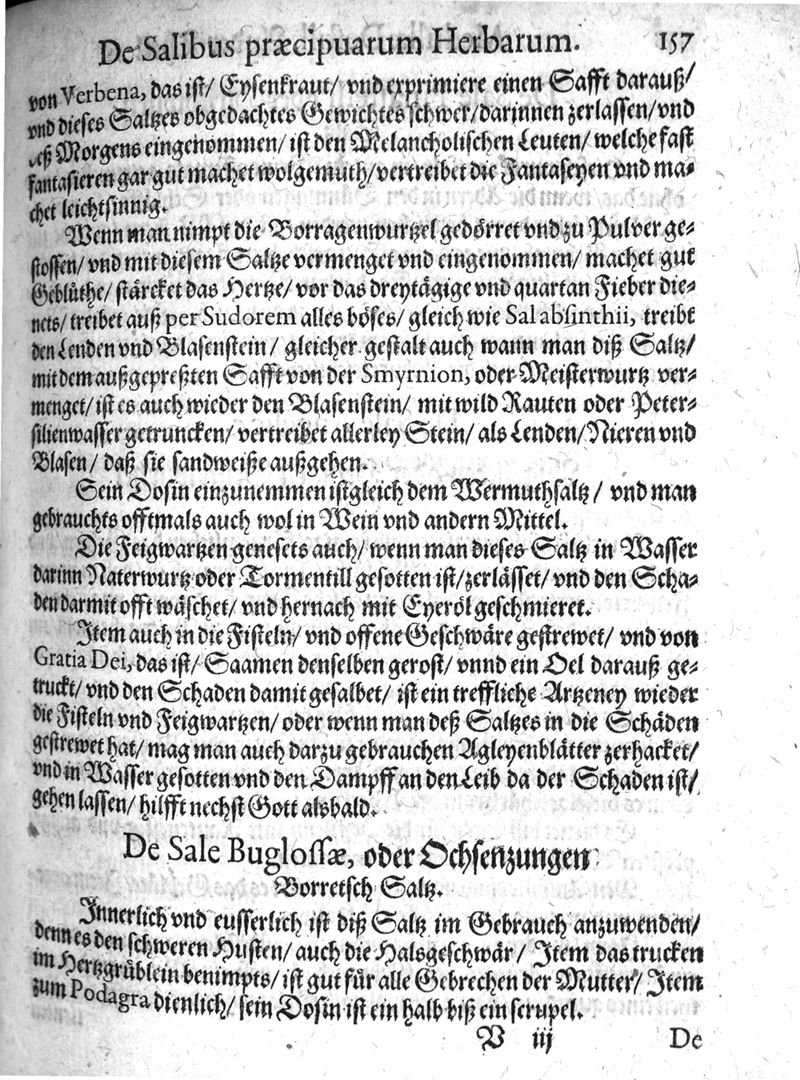 De Salibus præcipuarum Herbarum. 157
von Verbena, das ist/ Eysenkraut/ vnd exprimiere einen Safft darauß/
vnd dieses Saltzes obgedachtes Gewichtes schwer/ darinnen zerlassen/ vnd
deß Morgens eingenommen/ ist den Melancholischen Leuten/ welche fast
fantasieren gar gut machet wolgemuth/ vertreibet die Fantaseyen vnd ma-
chet leichtsinnig.
Wenn man nimpt die Borragenwurtzel gedörret vnd zu Pulver ge-
stossen/ vnd mit diesem Saltze vermenget vnd eingenommen/ machet gut
Geblüthe/ stärcket das Hertze/ vor das dreytägige vnd quartan Fieber die-
nets/ treibet auß per Sudorem alles böses/ gleich wie Sal absinthii, treibt
den Lenden vnd Blasenstein/ gleicher gestalt auch wann man diß Saltz/
mit dem außgepreßten Safft von der Smyrnion, oder Meisterwurtz ver-
menget/ ist es auch wieder den Blasenstein/ mit wild Rauten oder Peter-
silienwasser getruncken/ vertreibet allerley Stein/ als Lenden/ Nieren vnd
Blasen/ daß sie sandweiße außgehen.
Sein Dosin einzunemmen ist gleich dem Wermuthsaltz/ vnd man
gebrauchts offtmals auch wol in Wein vnd andern Mittel.
Die Feigwartzen genesets auch/ wenn man dieses Saltz in Wasser
darinn Naterwurtz oder Tormentill gesotten ist/ zerlässet/ vnd den Scha-
den darmit offt wäschet/ vnd hernach mit Eyeröl geschmieret.
Item auch in die Fisteln/ vnd offene Geschwäre gestrewet/ vnd von
Gratia Dei, das ist/ Saamen denselben gerost/ vnnd ein Oel darauß ge-
truckt/ vnd den Schaden damit gesalbet/ ist ein treffliche Artzeney wieder
die Fisteln vnd Feigwartzen/ oder wenn man deß Saltzes in die Schäden
gestrewet hat/ mag man auch darzu gebrauchen Agleyenblätter zerhacket/
vnd in Wasser gesotten vnd den Dampff an den Leib da der Schaden ist/
gehen lassen/ hilfft nechst Gott alsbald.
De Sale Buglossæ, oder Ochsenzungen
Borretsch Saltz.
Innerlich vnd eusserlich ist diß Saltz im Gebrauch anzuwenden/
denn es den schweren Husten/ auch die Halsgeschwär/ Item das trucken
im Hertzgrüblein benimpts/ ist gut für alle Gebrechen der Mutter/ Item
zum Podagra dienlich/ sein Dosin ist ein halb biß ein scrupel.
V iij De